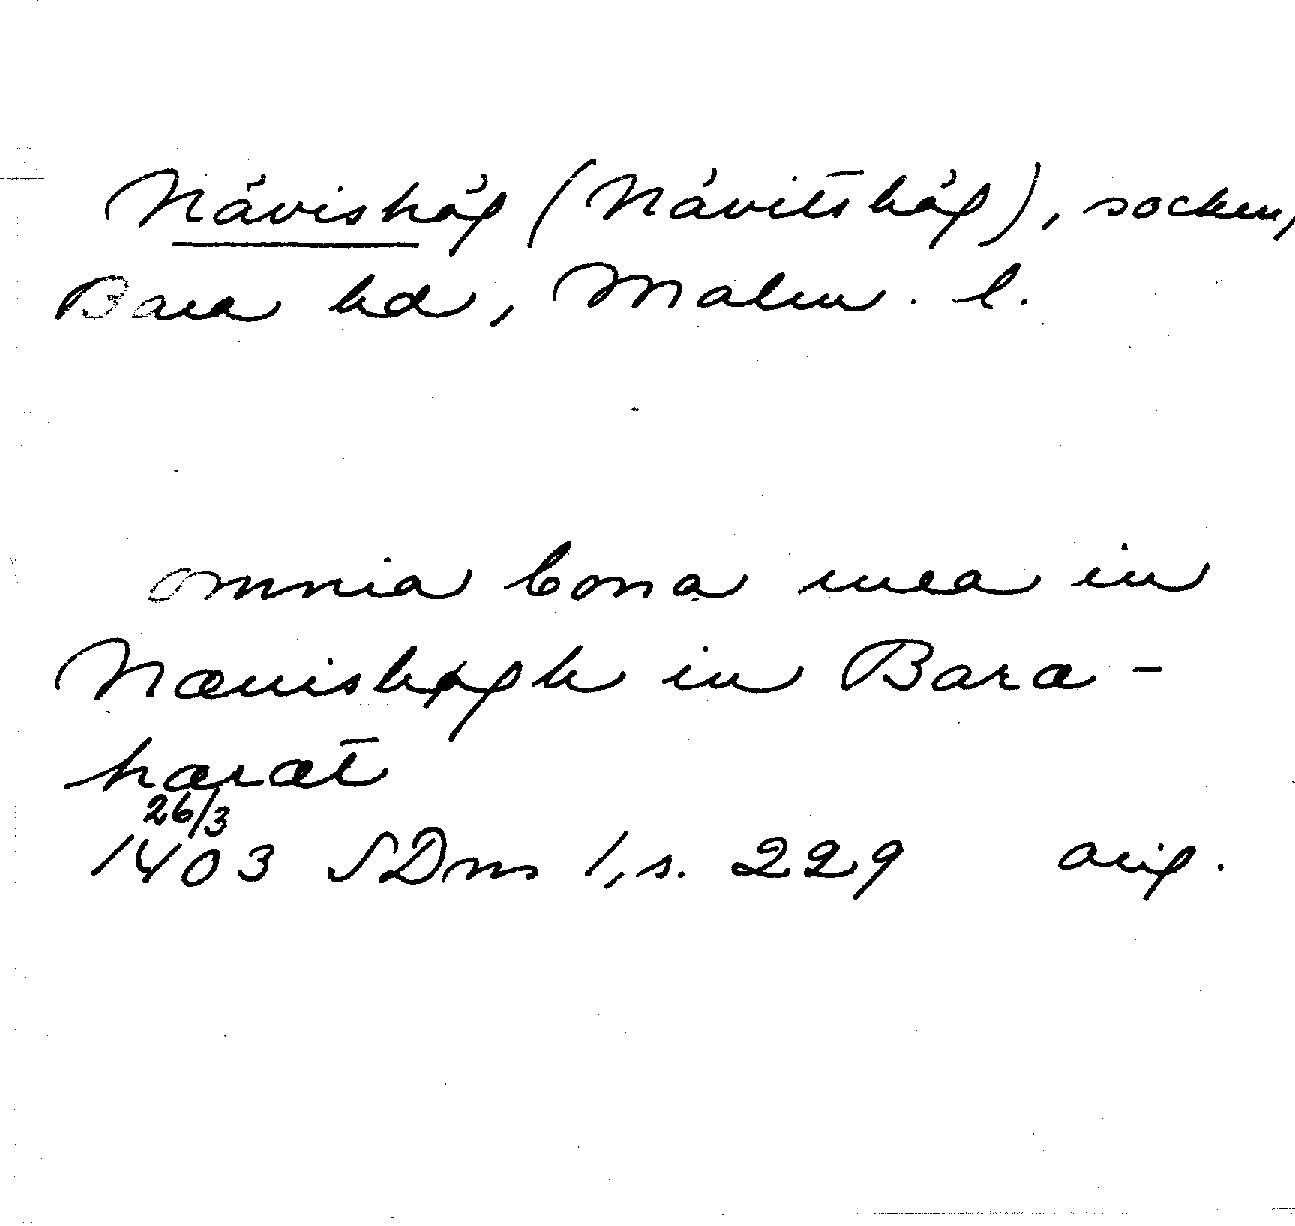 Nävishög (Nävitshög), socken,
Bara hd, Malm. l.
omnia bona mea in
Næuishøgh in Bara-
hæræt
26/3
1403 SDns 1, s. 229 orig.